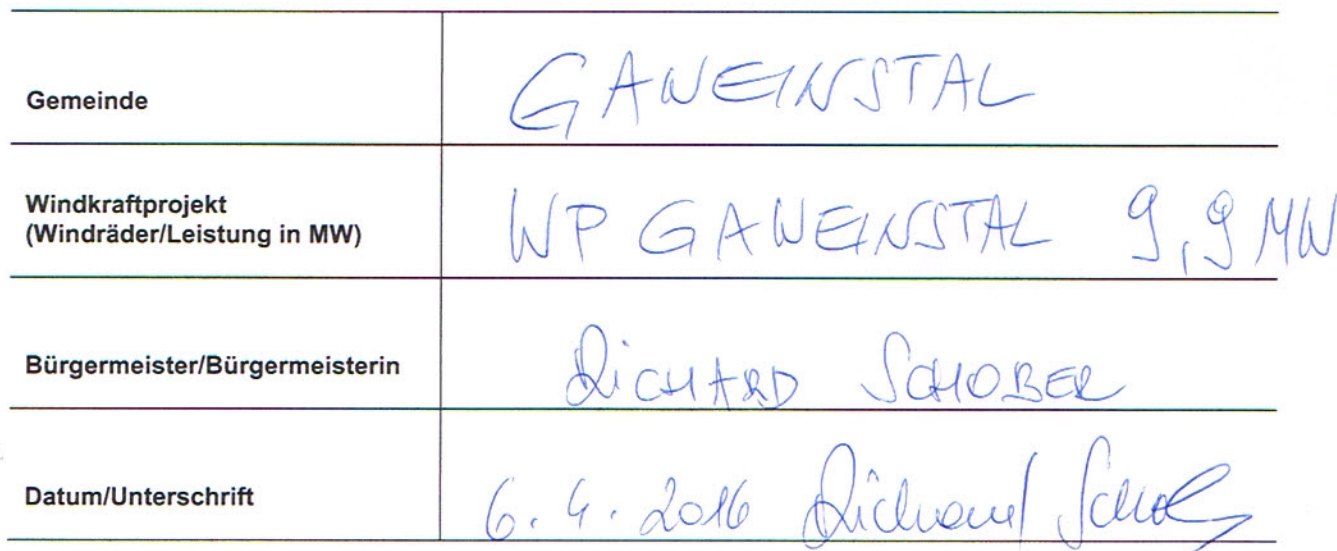 Gemeinde GAWEINSTAL
Windkraftprojekt
(Windräder/Leistung in MW) WP GAWEINSTAL 9,9 MW
Bürgermeister/Bürgermeisterin RICHARD SCHOBER
Datum/Unterschrift 6. 4. 2016 Richard Schober